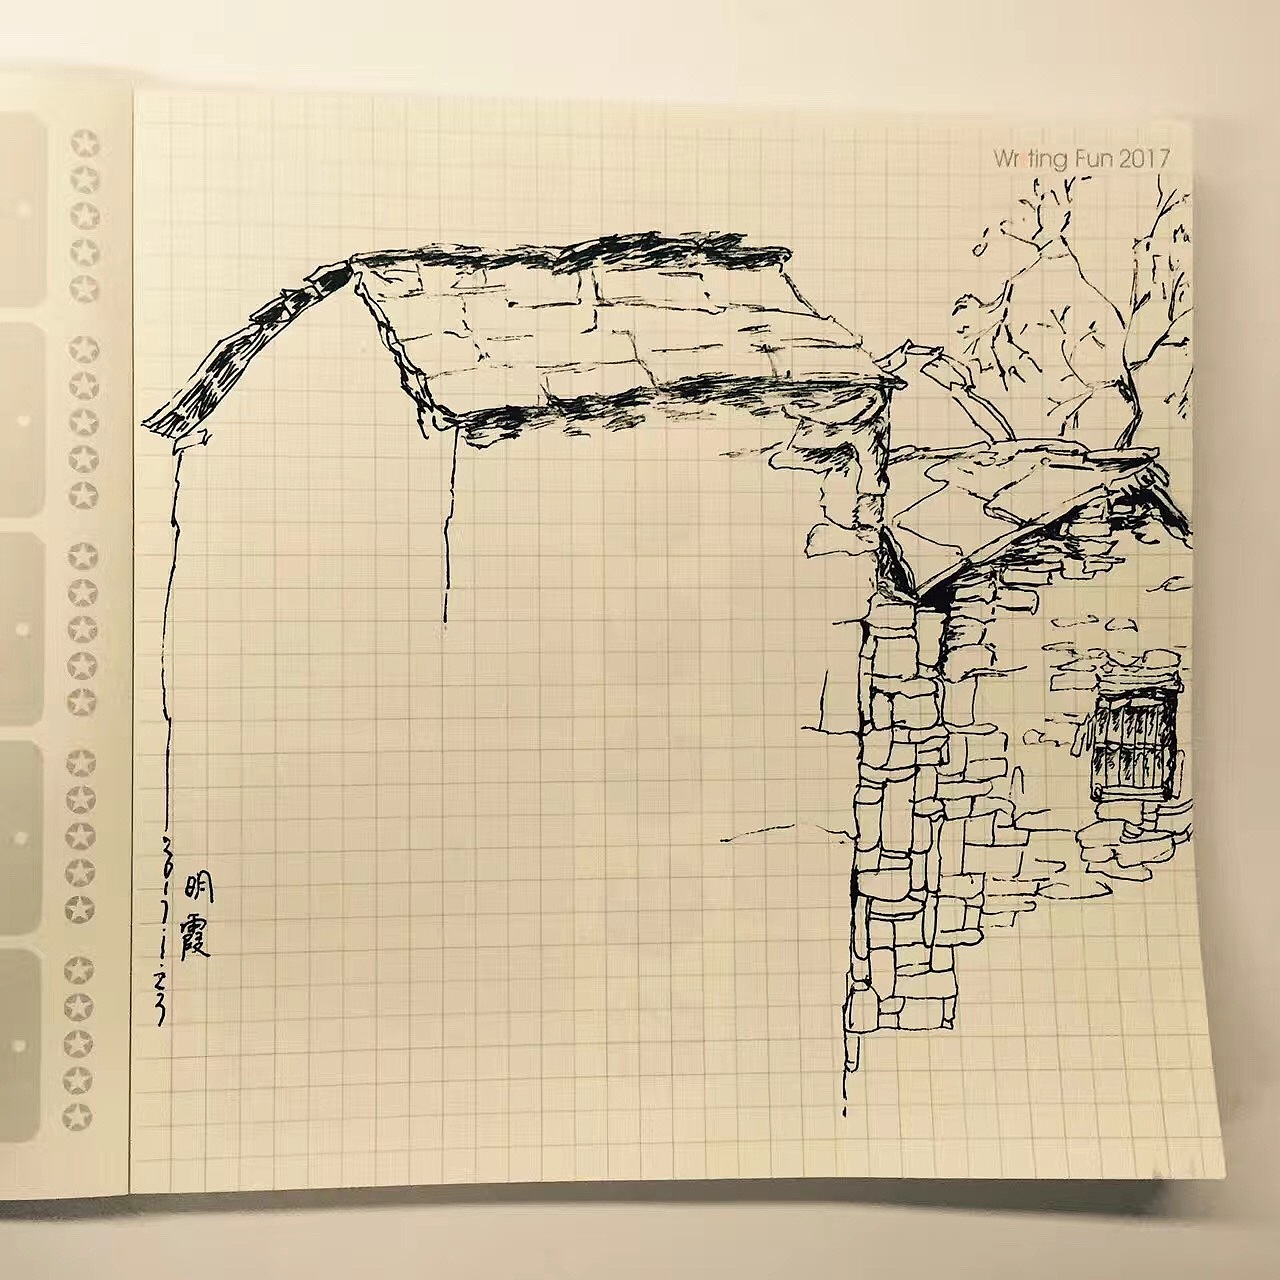 Writing Fun 2017
明霞
2017.1.23